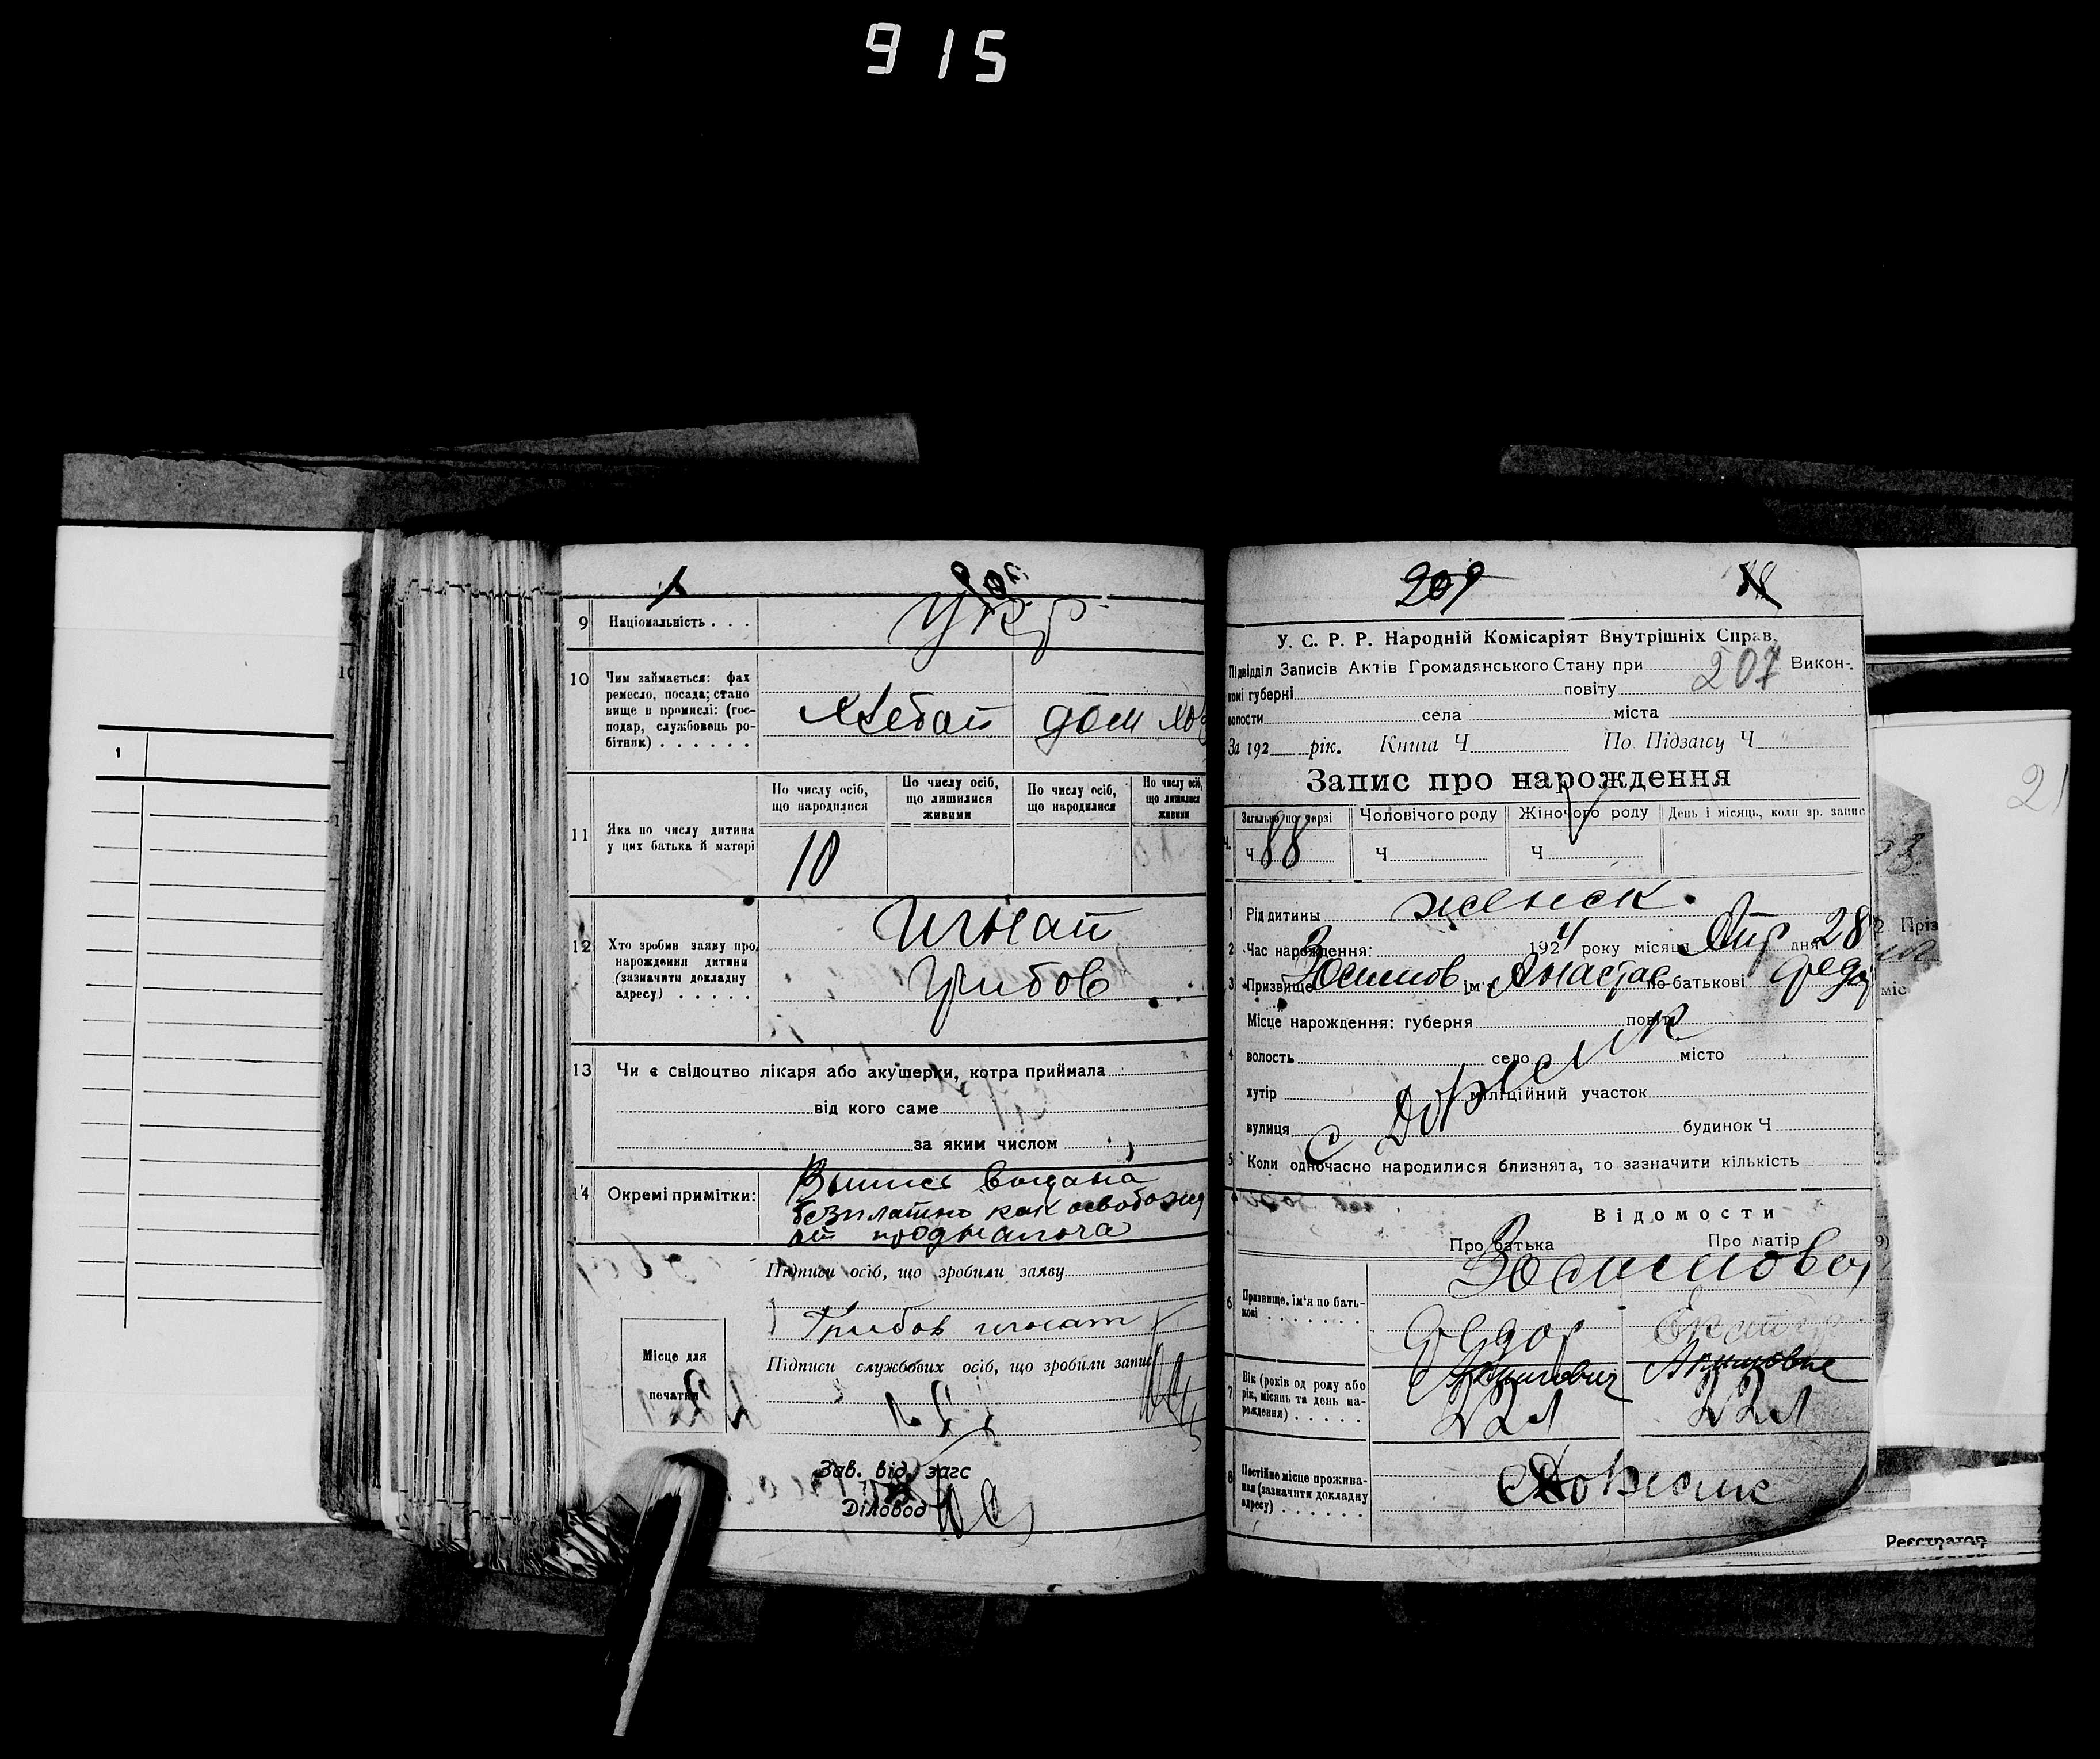 915
9 Національність . . .
Укр
10 Чим займається: фах
ремесло, посада; стано
вище в промислі: (гос-
подар, службовець ро-
бітник) . . . . . .
Хлебоп дом хоз
11 Яка по числу дитина
у цих батька й матері
По числу осіб,
що народилися
По числу осіб,
що лишилися
живими
По числу осіб,
що народилися
По числу осіб,
що лишилися
живими
10
12 Хто зробив заяву про
нарождення дитини
(зазначити докладну
адресу) . . . . .
Игнат
Грибов
13 Чи є свідоцтво лікаря або акушерки, котра приймала
від кого саме
за яким числом
14 Окремі примітки:
Выпись выдана
безплатно как освобожд
от подналога
Підписи осіб, що зробили заяву
Грибов игнат
Підписи службових осіб, що зробили запис
Місце для
печатки
Зав. від. загс
Діловод
209
У. С. Р. Р. Народній Комісаріят Внутрішніх Справ.
Підвідділ Записів Актів Громадянського Стану при 207 Викон-
комі губерні повіту
волости села міста
За 192 рік. Книга Ч По Підзагсу Ч
Запис про нарождення
Загально по черзі Чоловічого роду Жіночого роду День і місяць, коли зр. запис
Ч 88 Ч Ч
1 Рід дитины женск.
2 Час нарождення: 1924 року місяця Апр дня 28
3 Призвище Зосимов ім'я Анастас по-батькові Федор
Місце нарождення: губерня повіт
4 волость село місто
хутір міліційний участок
вулиця будинок Ч
с Должик
5 Коли одночасно народилися близнята, то зазначити кількість
Відомости
Про батька Про матір
Зосимова
6 Призвище, ім'я по бать-
кові . . . . . . .
Федор
7 Вік (років од роду або
рік, місяць та день на-
рождення) . . . . .
22л 22л
8 Постійне місце прожива-
ння (зазначити докладну
адресу) . . . . . .
с Должик
Реєстратор